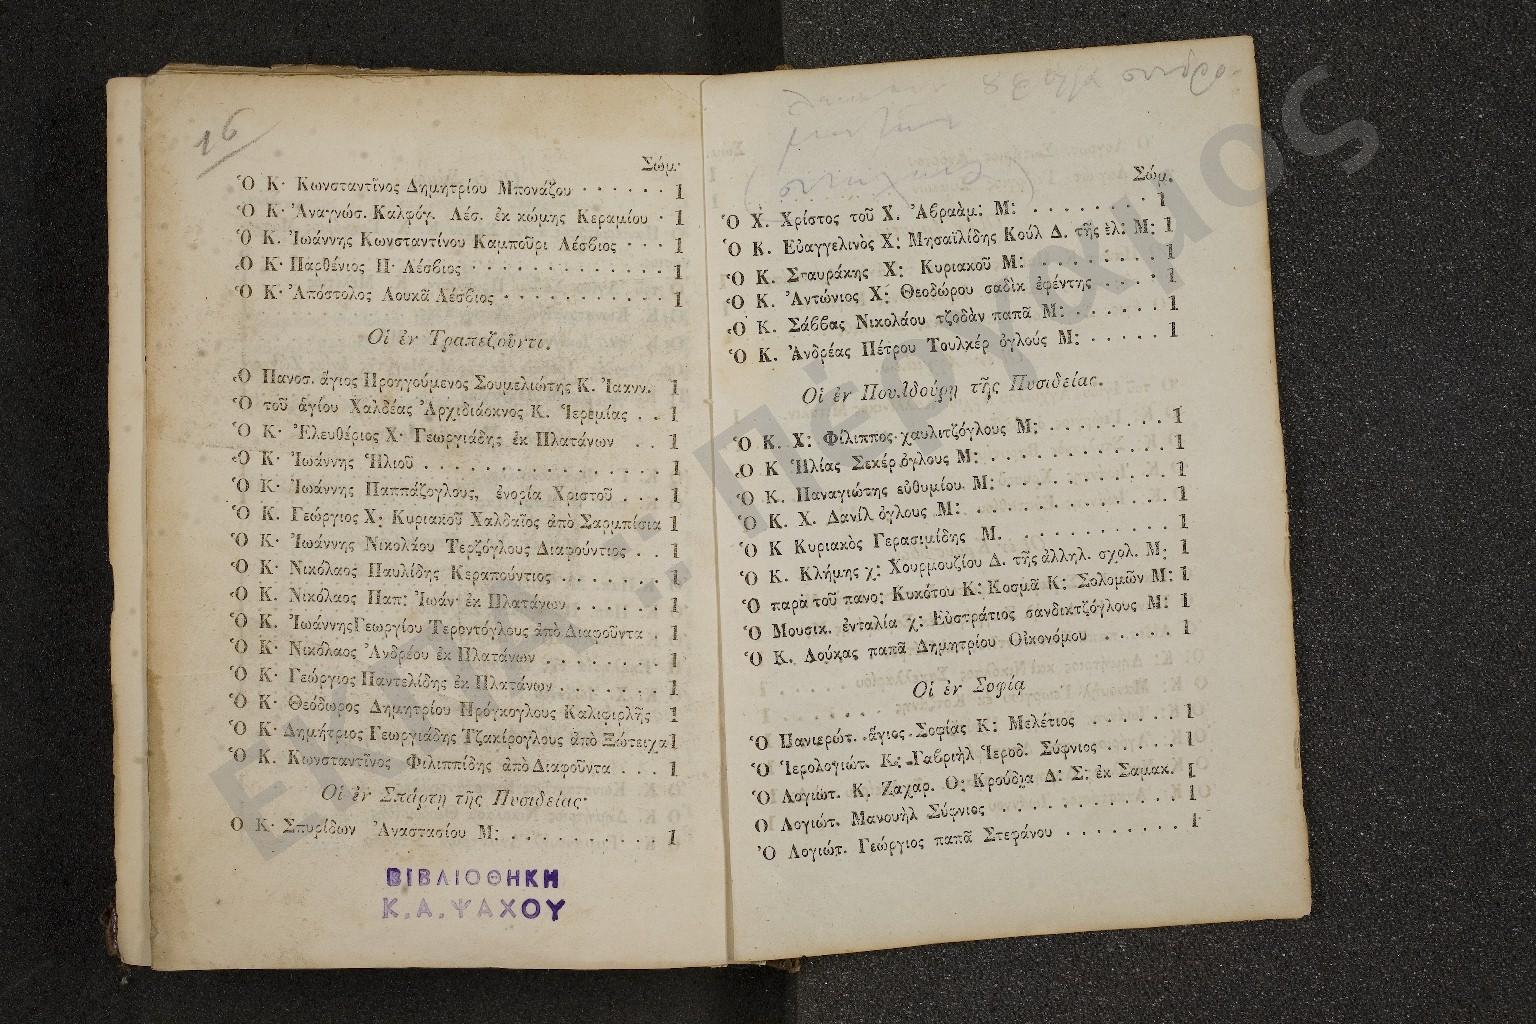 16
Σώμ·
Ὁ Κ· Κωνσταντῖνος Δημητρίου Μπονάζου · · · · · · 1
Ὁ Κ· Ἀναγνώσ. Καλφόγ. Λέσ. ἐκ κώμης Κεραμίου · 1
Ὁ Κ. Ἰωάννης Κωνσταντίνου Καμποῦρι Λέσβιος · · · 1
Ὁ Κ· Παρθένιος Π· Λέσβιος · · · · · · · · · · · · · 1
Ὁ Κ· Ἀπόστολος Λουκᾶ Λέσβιος · · · · · · · · · · · 1
Οἱ ἐν Τραπεζοῦντι.
Ὁ Πανοσ. ἅγιος Προηγούμενος Σουμελιώτης Κ. Ἰακνν. 1
Ὁ τοῦ ἁγίου Χαλδέας Ἀρχιδιάοκνος Κ. Ἱερεμίας . . 1
Ὁ Κ· Ἐλευθέριος Χ· Γεωργιάδης ἐκ Πλατάνων . . 1
Ὁ Κ· Ἰωάννης Ἠλιοῦ . . . . . . . . . . . . . . . 1
Ὁ Κ· Ἰωάννης Παππάζογλους, ἐνορία Χριστοῦ . . . 1
Ὁ Κ. Γεώργιος Χ: Κυριακοῦ Χαλδαῖος ἀπὸ Σαρμπίσια 1
Ὁ Κ· Ἰωάννης Νικολάου Τερζόγλους Διαφούντιος . . 1
Ὁ Κ· Νικόλαος Παυλίδης Κεραπούντιος . . . . . . . 1
Ὁ Κ. Νικόλαος Παπ: Ἰωάν· ἐκ Πλατάνων . . . . . . 1
Ὁ Κ. Ἰωάννης Γεωργίου Τεροντόγλους ἀπὸ Διαφοῦντα . 1
Ὁ Κ· Νικόλαος Ἀνδρέου ἐκ Πλατάνων . . . . . . . . 1
Ὁ Κ· Γεώργιος Παντελίδης ἐκ Πλατάνων . . . . . . . 1
Ὁ Κ· Θεόδωρος Δημητρίου Πρόγκογλους Καλιφιρλῆς 1
Ὁ Κ· Δημήτριος Γεωργιάδης Τζακίρογλους ἀπὸ Ξώτειχα 1
Ὁ Κ. Κωνσταντῖνος Φιλιππίδης ἀπὸ Διαφοῦντα . . . 1
Οἱ ἐν Σπάρτῃ τῆς Πισιδείας·
Ὁ Κ· Σπυρίδων Ἀναστασίου Μ: . . . . . . . . . . 1
ΒΙΒΛΙΟΘΗΚΗ
Κ.Α.ΨΑΧΟΥ
Σώμ.
Ὁ Χ. Χρίστος τοῦ Χ. Ἀβραὰμ: Μ: . . . . . . . . 1
Ὁ Κ. Εὐαγγελινὸς Χ: Μησαϊλίδης Κούλ Δ. τῆς ἑλ: Μ: 1
Ὁ Κ. Σταυράκης Χ: Κυριακοῦ Μ: . . . . . . . . 1
Ὁ Κ. Ἀντώνιος Χ: Θεοδώρου σαδὶκ ἐφέντης . . . . 1
Ὁ Κ. Σάββας Νικολάου τζοδὰν παπᾶ Μ: . . . . . . 1
Ὁ Κ. Ἀνδρέας Πέτρου Τουλκέρ ὀγλούς Μ: . . . . . 1
Οἱ ἐν Πουλδούρῃ τῆς Πυσιδείας.
Ὁ Κ. Χ: Φίλιππος χαυλιτζόγλους Μ: . . . . . . . . 1
Ὁ Κ Ἠλίας Σεκέρ ὀγλους Μ: . . . . . . . . . . . 1
Ὁ Κ. Παναγιώτης εὐθυμίου Μ: . . . . . . . . . . 1
Ὁ Κ. Χ. Δανίλ ὀγλους Μ: . . . . . . . . . . . . 1
Ὁ Κ Κυριακὸς Γερασιμίδης Μ. . . . . . . . . . . 1
Ὁ Κ. Κλήμης χ: Χουρμουζίου Δ. τῆς ἀλληλ. σχολ. Μ. 1
Ὁ παρὰ τοῦ πανο: Κυκότου Κ: Κοσμᾶ Κ: Σολομῶν Μ: 1
Ὁ Μουσικ. ἐνταλία χ: Εὐστράτιος σανδικτζόγλους Μ: 1
Ὁ Κ. Λούκας παπᾶ Δημητρίου Οἰκονόμου . . . . . 1
Οἱ ἐν Σοφίᾳ
Ὁ Πανιερώτ. ἅγιος Σοφίας Κ: Μελέτιος . . . . . . 1
Ὁ Ἱερολογιώτ. Κ: Γαβριὴλ Ἱεροδ. Σύφνιος . . . . . . 1
Ὁ Λογιώτ. Κ. Ζαχαρ. Θ: Κρούδια Δ: Σ: ἐκ Σαμακ. 1
Ὁ Λογιώτ. Μανουὴλ Σύφνιος . . . . . . . . . . . 1
Ὁ Λογιώτ. Γεώργιος παπᾶ Στεφάνου . . . . . . . . 1